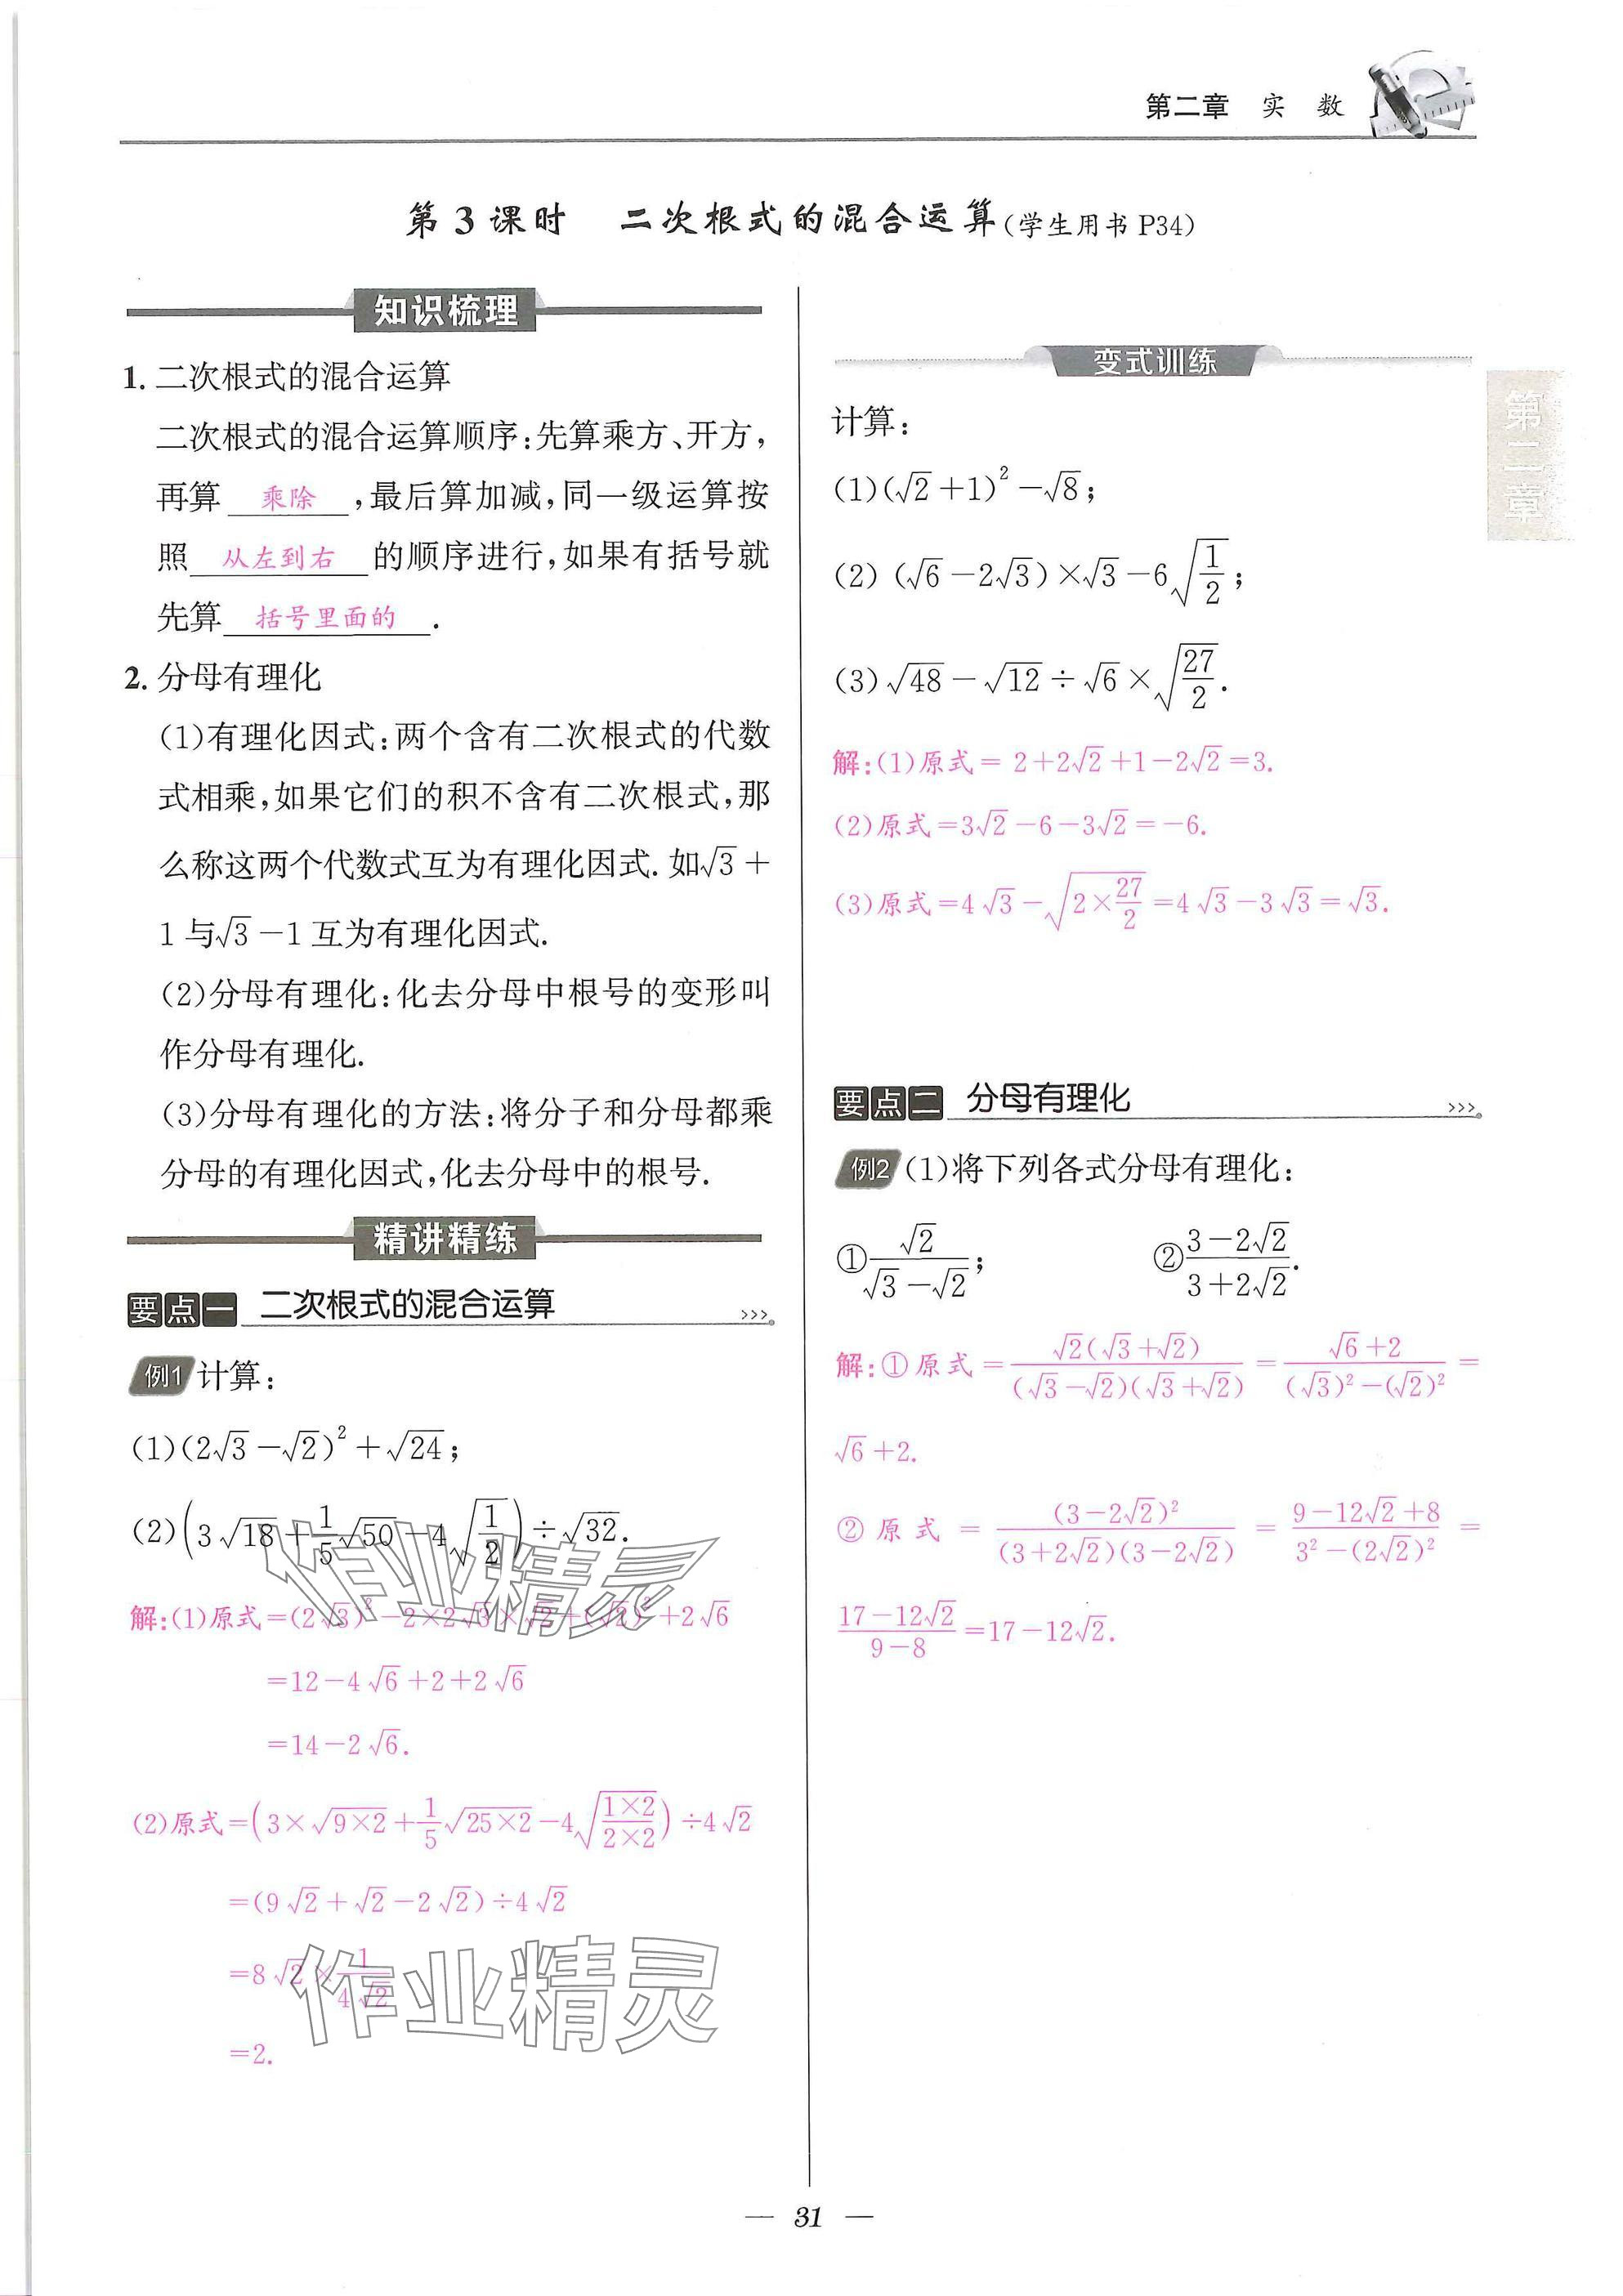 第二章 实 数
第 3 课时 二次根式的混合运算(学生用书 P34)
知识梳理
1. 二次根式的混合运算
二次根式的混合运算顺序:先算乘方、开方,
再算 乘除 ,最后算加减,同一级运算按
照 从左到右 的顺序进行,如果有括号就
先算 括号里面的 .
2. 分母有理化
(1)有理化因式:两个含有二次根式的代数
式相乘,如果它们的积不含有二次根式,那
么称这两个代数式互为有理化因式. 如√3 +
1 与√3 −1 互为有理化因式.
(2)分母有理化:化去分母中根号的变形叫
作分母有理化.
(3)分母有理化的方法:将分子和分母都乘
分母的有理化因式,化去分母中的根号.
精讲精练
要点一 二次根式的混合运算 >>>
例1 计算:
(1)(2√3 −√2)² +√24;
(2)(3√18 + 1/5 √50 − 4√(1/2)) ÷ √32.
解:(1)原式=(2√3)²−2×2√3×√2+(√2)²+2√6
=12−4√6+2+2√6
=14−2√6.
(2)原式=(3×√(9×2)+1/5 √(25×2)−4√((1×2)/(2×2)))÷4√2
=(9√2+√2−2√2)÷4√2
=8√2×1/(4√2)
=2.
变式训练
计算:
(1)(√2+1)²−√8;
(2) (√6−2√3)×√3−6√(1/2);
(3)√48−√12÷√6×√(27/2).
解:(1)原式= 2+2√2+1−2√2=3.
(2)原式=3√2−6−3√2=−6.
(3)原式=4√3−√(2×27/2)=4√3−3√3=√3.
要点二 分母有理化 >>>
例2 (1)将下列各式分母有理化:
①√2/(√3−√2); ②(3−2√2)/(3+2√2).
解:①原式=√2(√3+√2)/((√3−√2)(√3+√2))=(√6+2)/((√3)²−(√2)²)=
√6+2.
②原式=(3−2√2)²/((3+2√2)(3−2√2))=(9−12√2+8)/(3²−(2√2)²)=
(17−12√2)/(9−8)=17−12√2.
第二章
作业精灵
作业精灵
— 31 —